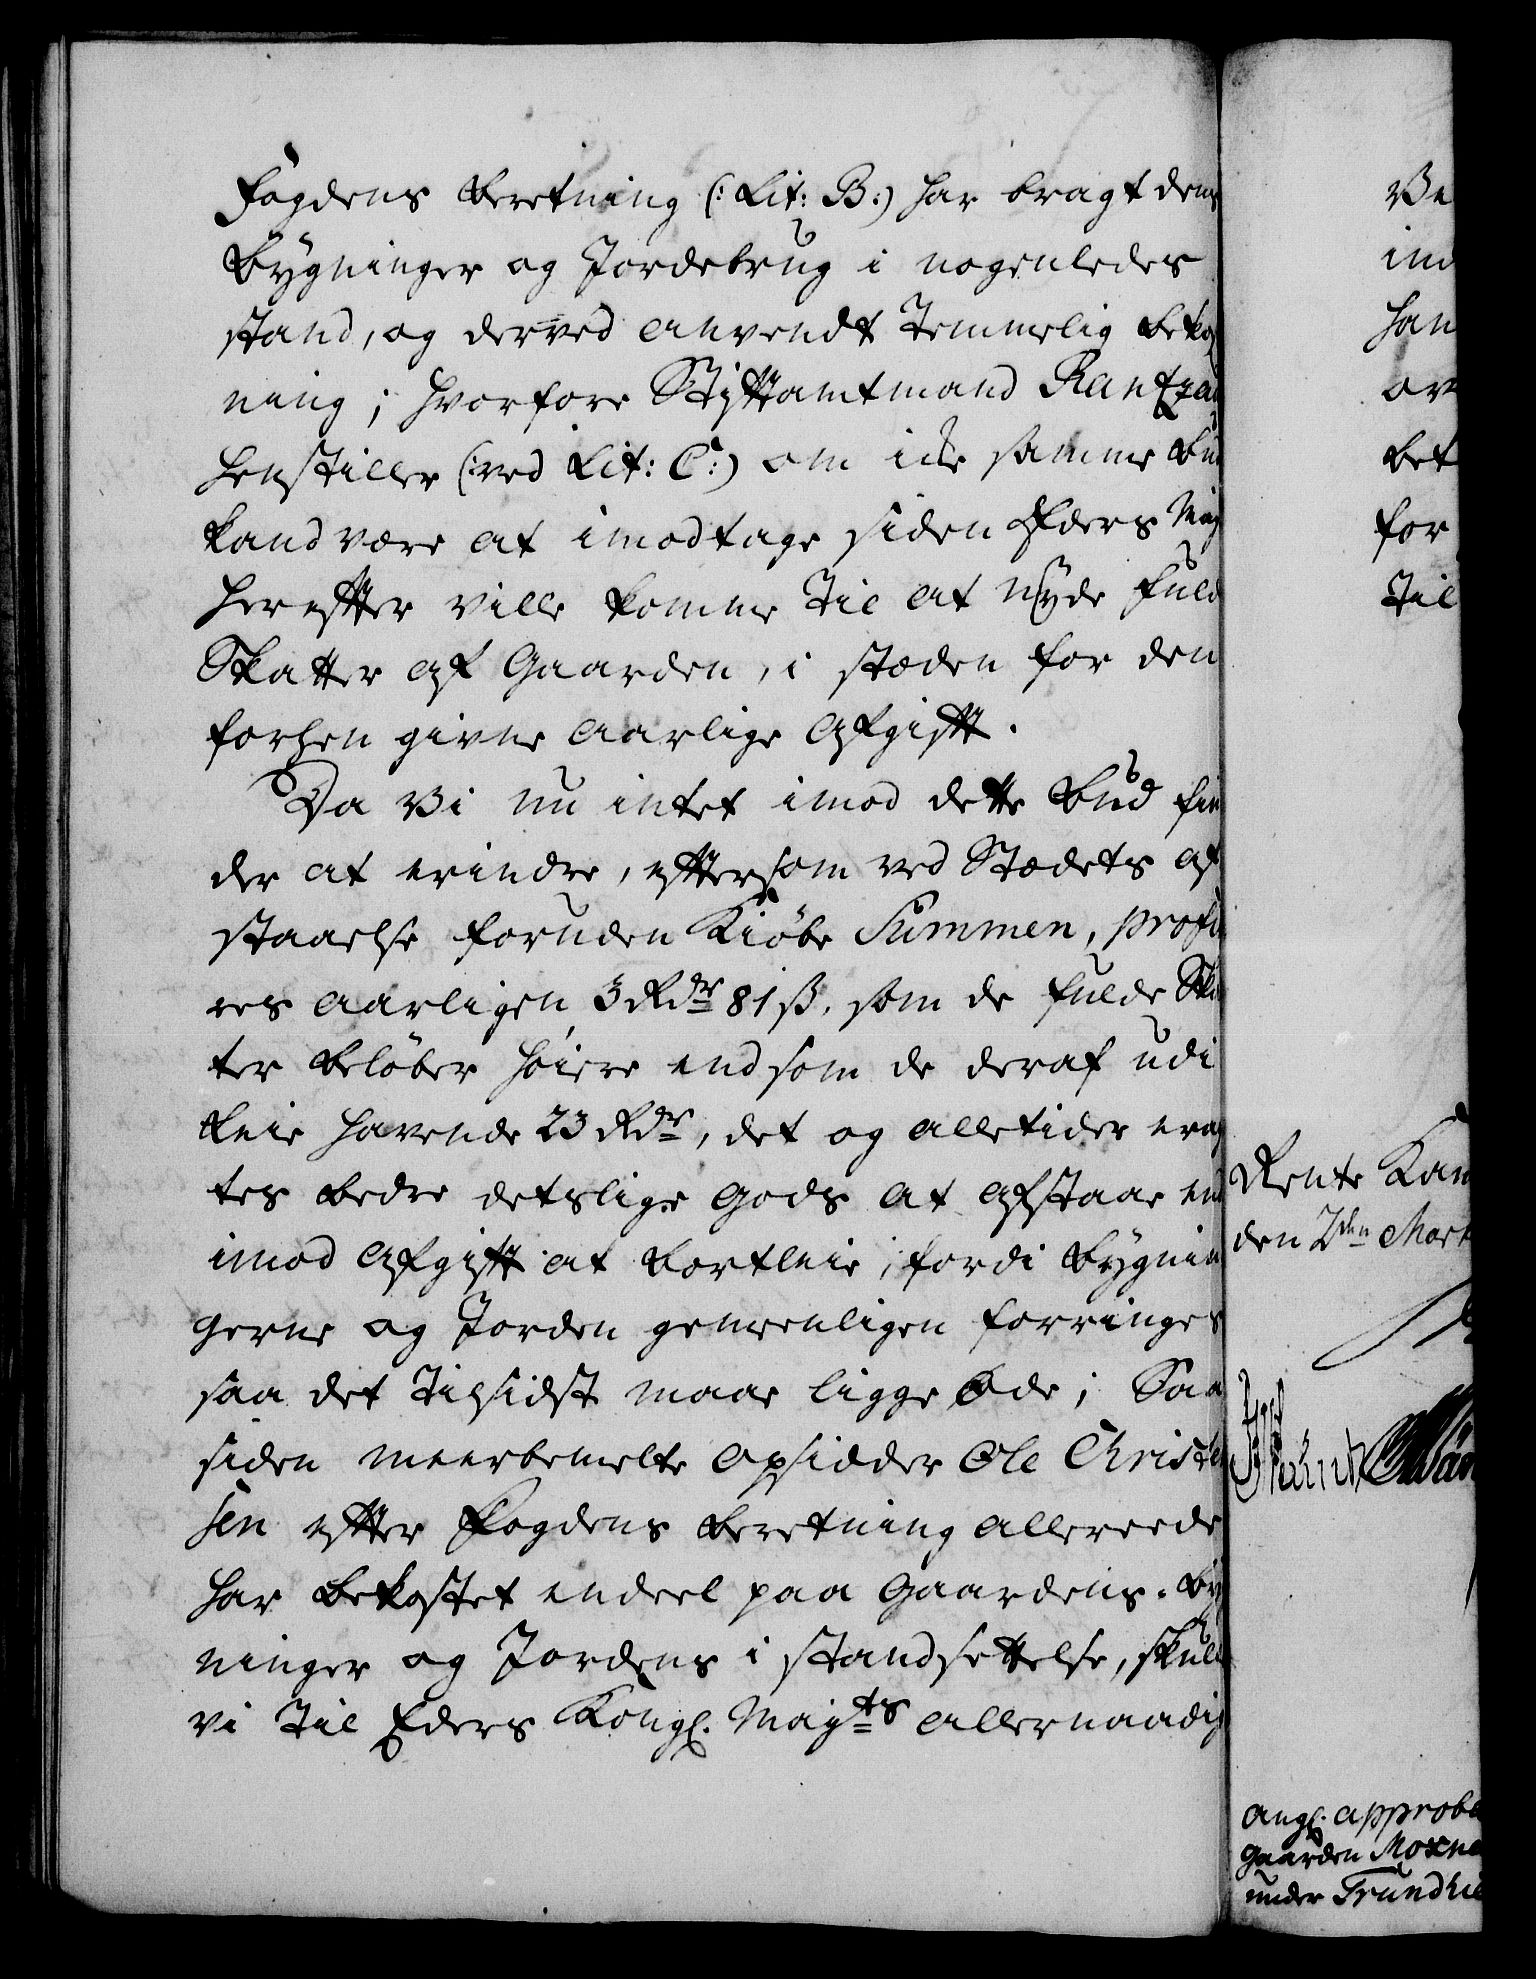 Fogdens Beretning (: Lit: B:) har bragt dens
Bygninger og Jordebrug i nogenledes
stand, og derved anvendt temmelig bekost
ning; hvorfore Stiftamtmand Rantzau
henstiller (:ved Lit: C:) om icke samme Bud
kand være at imodtage siden Eders May
herefter ville komme til at nyde fulde
Skatter af Gaarden, i stæden for den
forhen givne aarlige Afgift.
Da Vi nu intet imod dette Bud fin
der at erindre, eftersom ved Stædets af
staaelse foruden Kiøbe Summen, profite
res aarligen 3 Rdr 81 ß, som de fulde Skat
ter beløber høiere end som de deraf udi
Leie havende 23 Rdr, det og alletider erag
tes bedre detslige Gods at afstaae end
imod Afgift at bortleie, fordi Bygnin
gerne og Jorden gemeenligen forringes
saa det tilsidst maae ligge Øde; Saa
siden meerbemelte Opsidder Ole Christen
sen efter Fogdens Beretning allereede
har bekostet endeel paa Gaardens Byg
ninger og Jordens i standsettelse, skulle
vi til Eders Kongl. Mayts allernaadig
Ve
ind
han
ov
bet
for
til
Rente Kam
den 2den Mart
ang. approba
Gaarden Moxne
under Trundhie